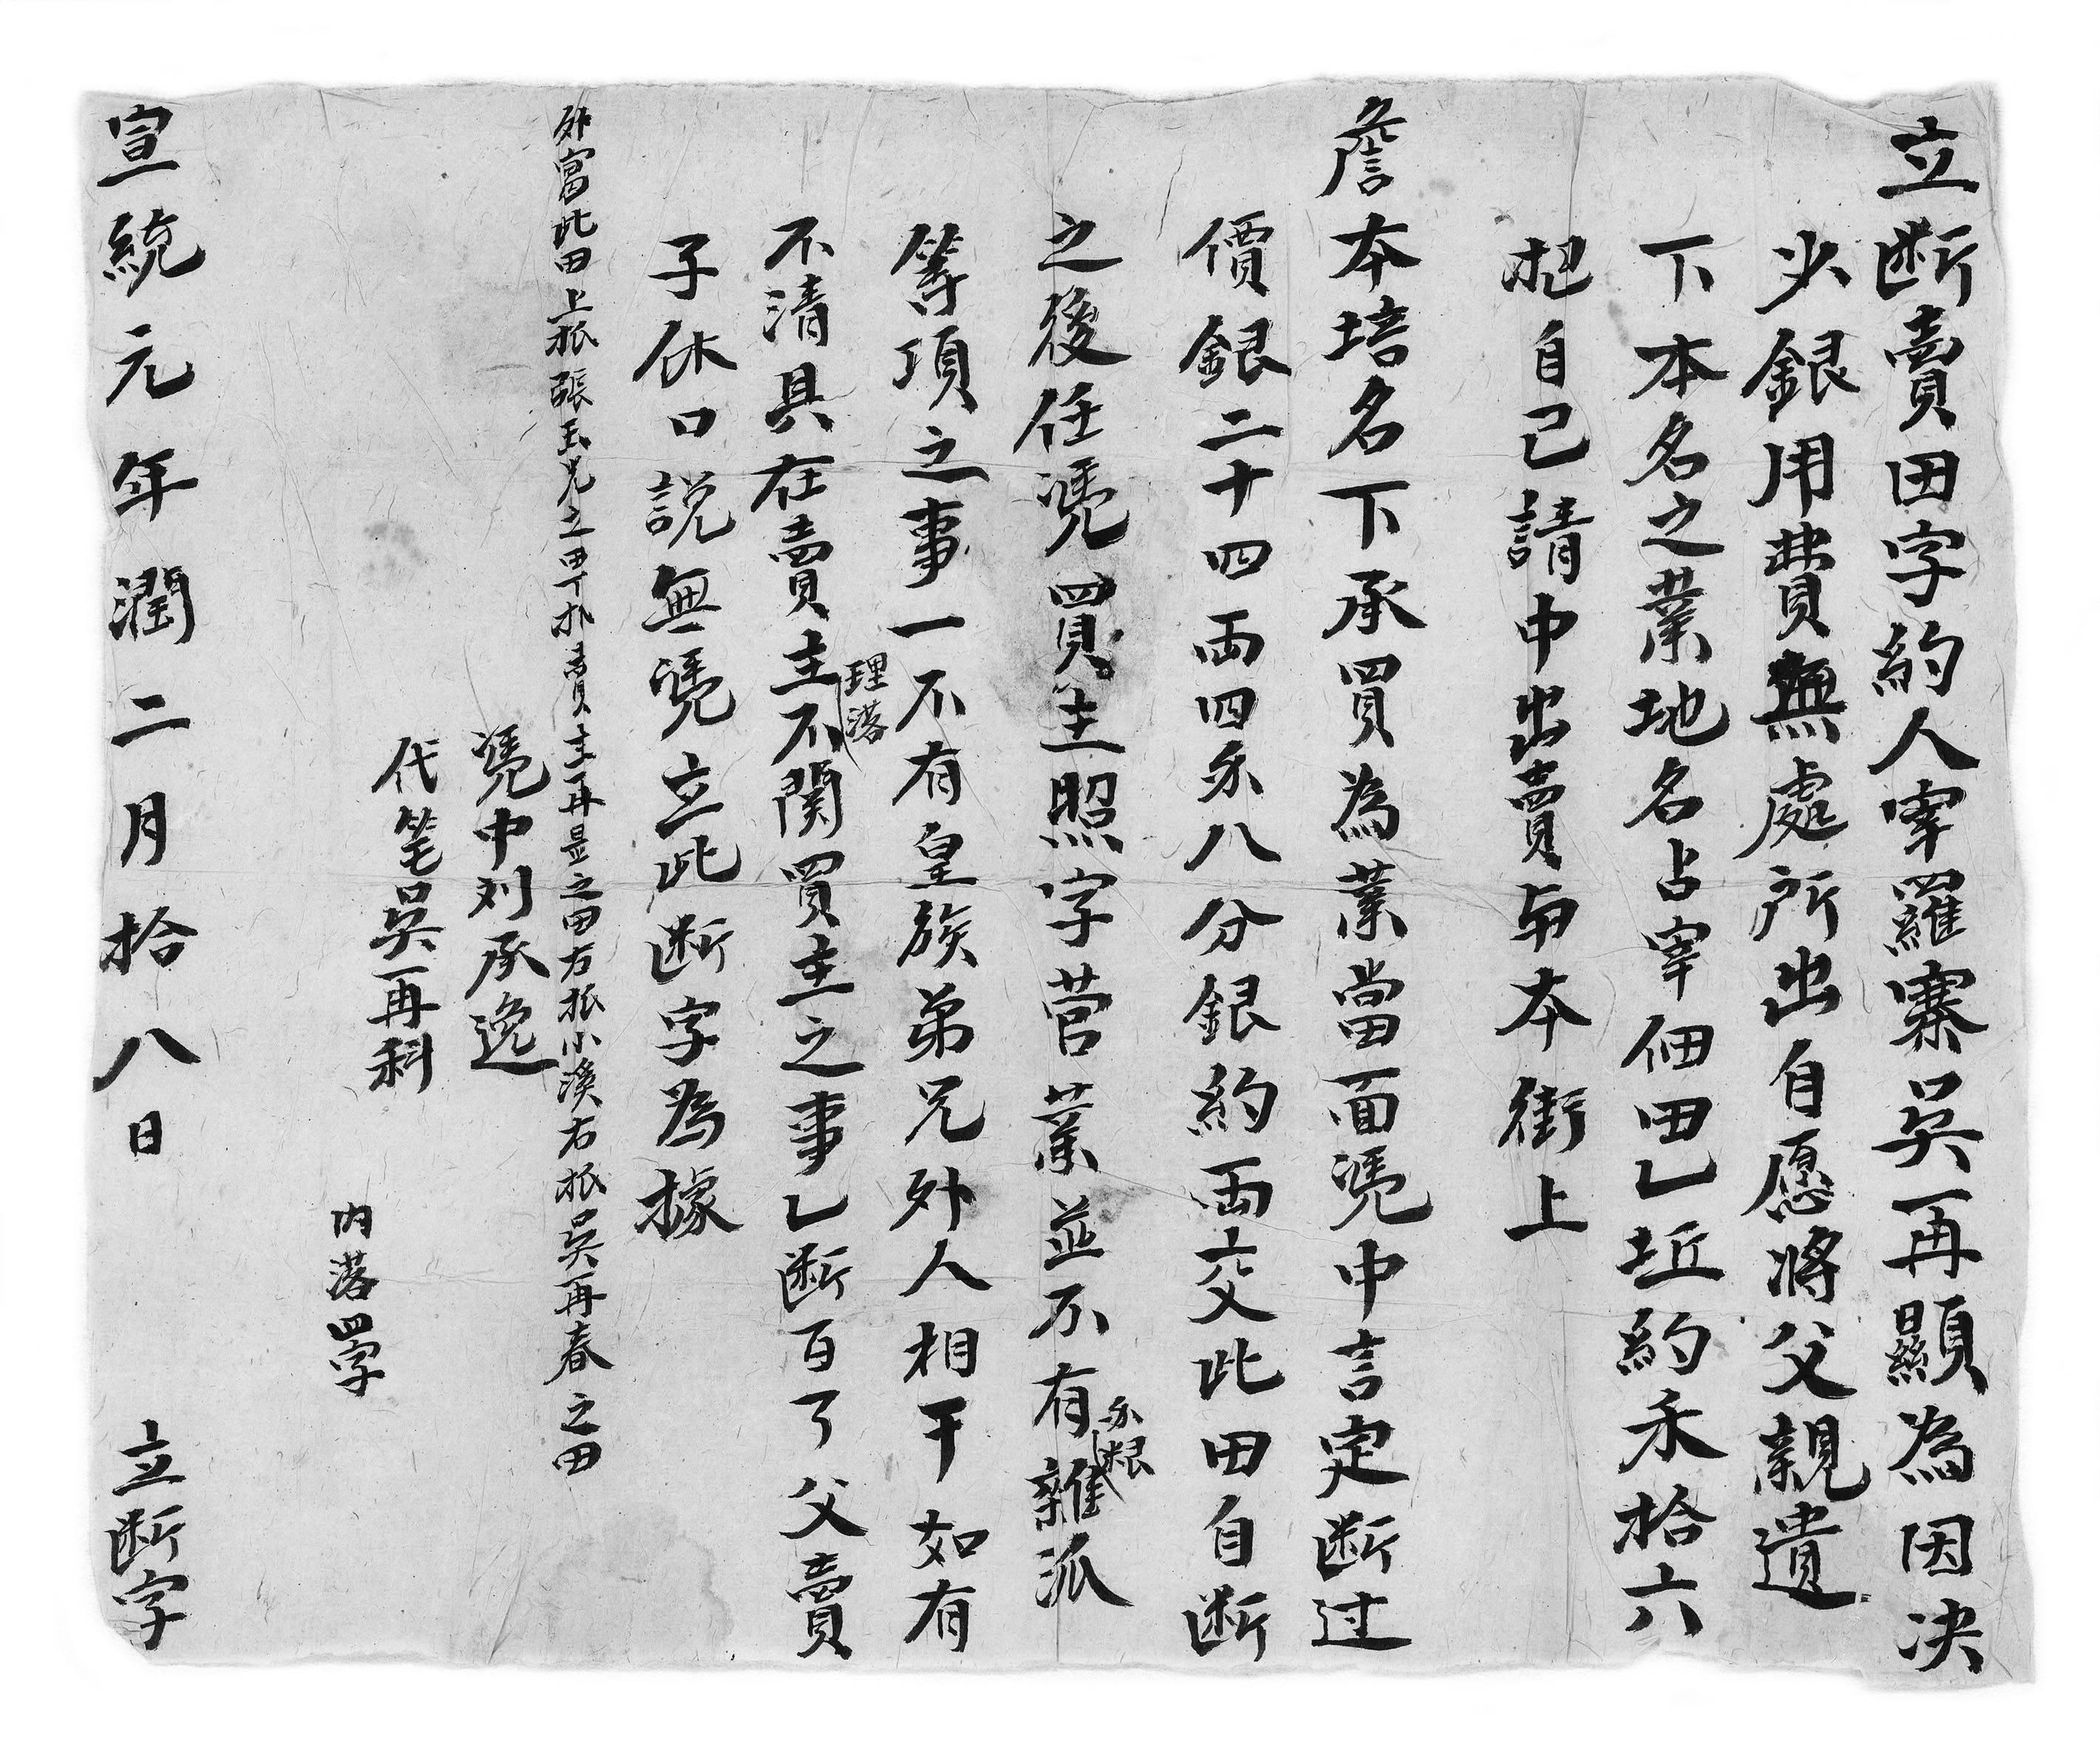 立断賣田字約人宰羅寨吳再顯為因决
少銀用費無處所出自愿将父親遺
下本名之業地名占宰佃田乚坵約禾拾六
把自己請中出賣与本街上
詹本培名下承買為業當面凴中言定断过
價銀二十四両四禾八分銀約両交此田自断
之後任凴買主照字菅業並不有雜派
禾粮
等項之事一不有皇族弟兄外人相干如有
不清具在賣主不関買主之事乚断百了父賣
理落
子休口説無凴立此断字為據
外富此田上抵張玉兄之田下抵賣主再显之田方抵小溪右抵吳再春之田
凴中刘承逸
代笔吳再科
内落四字
宣統元年潤二月拾八日 立断字